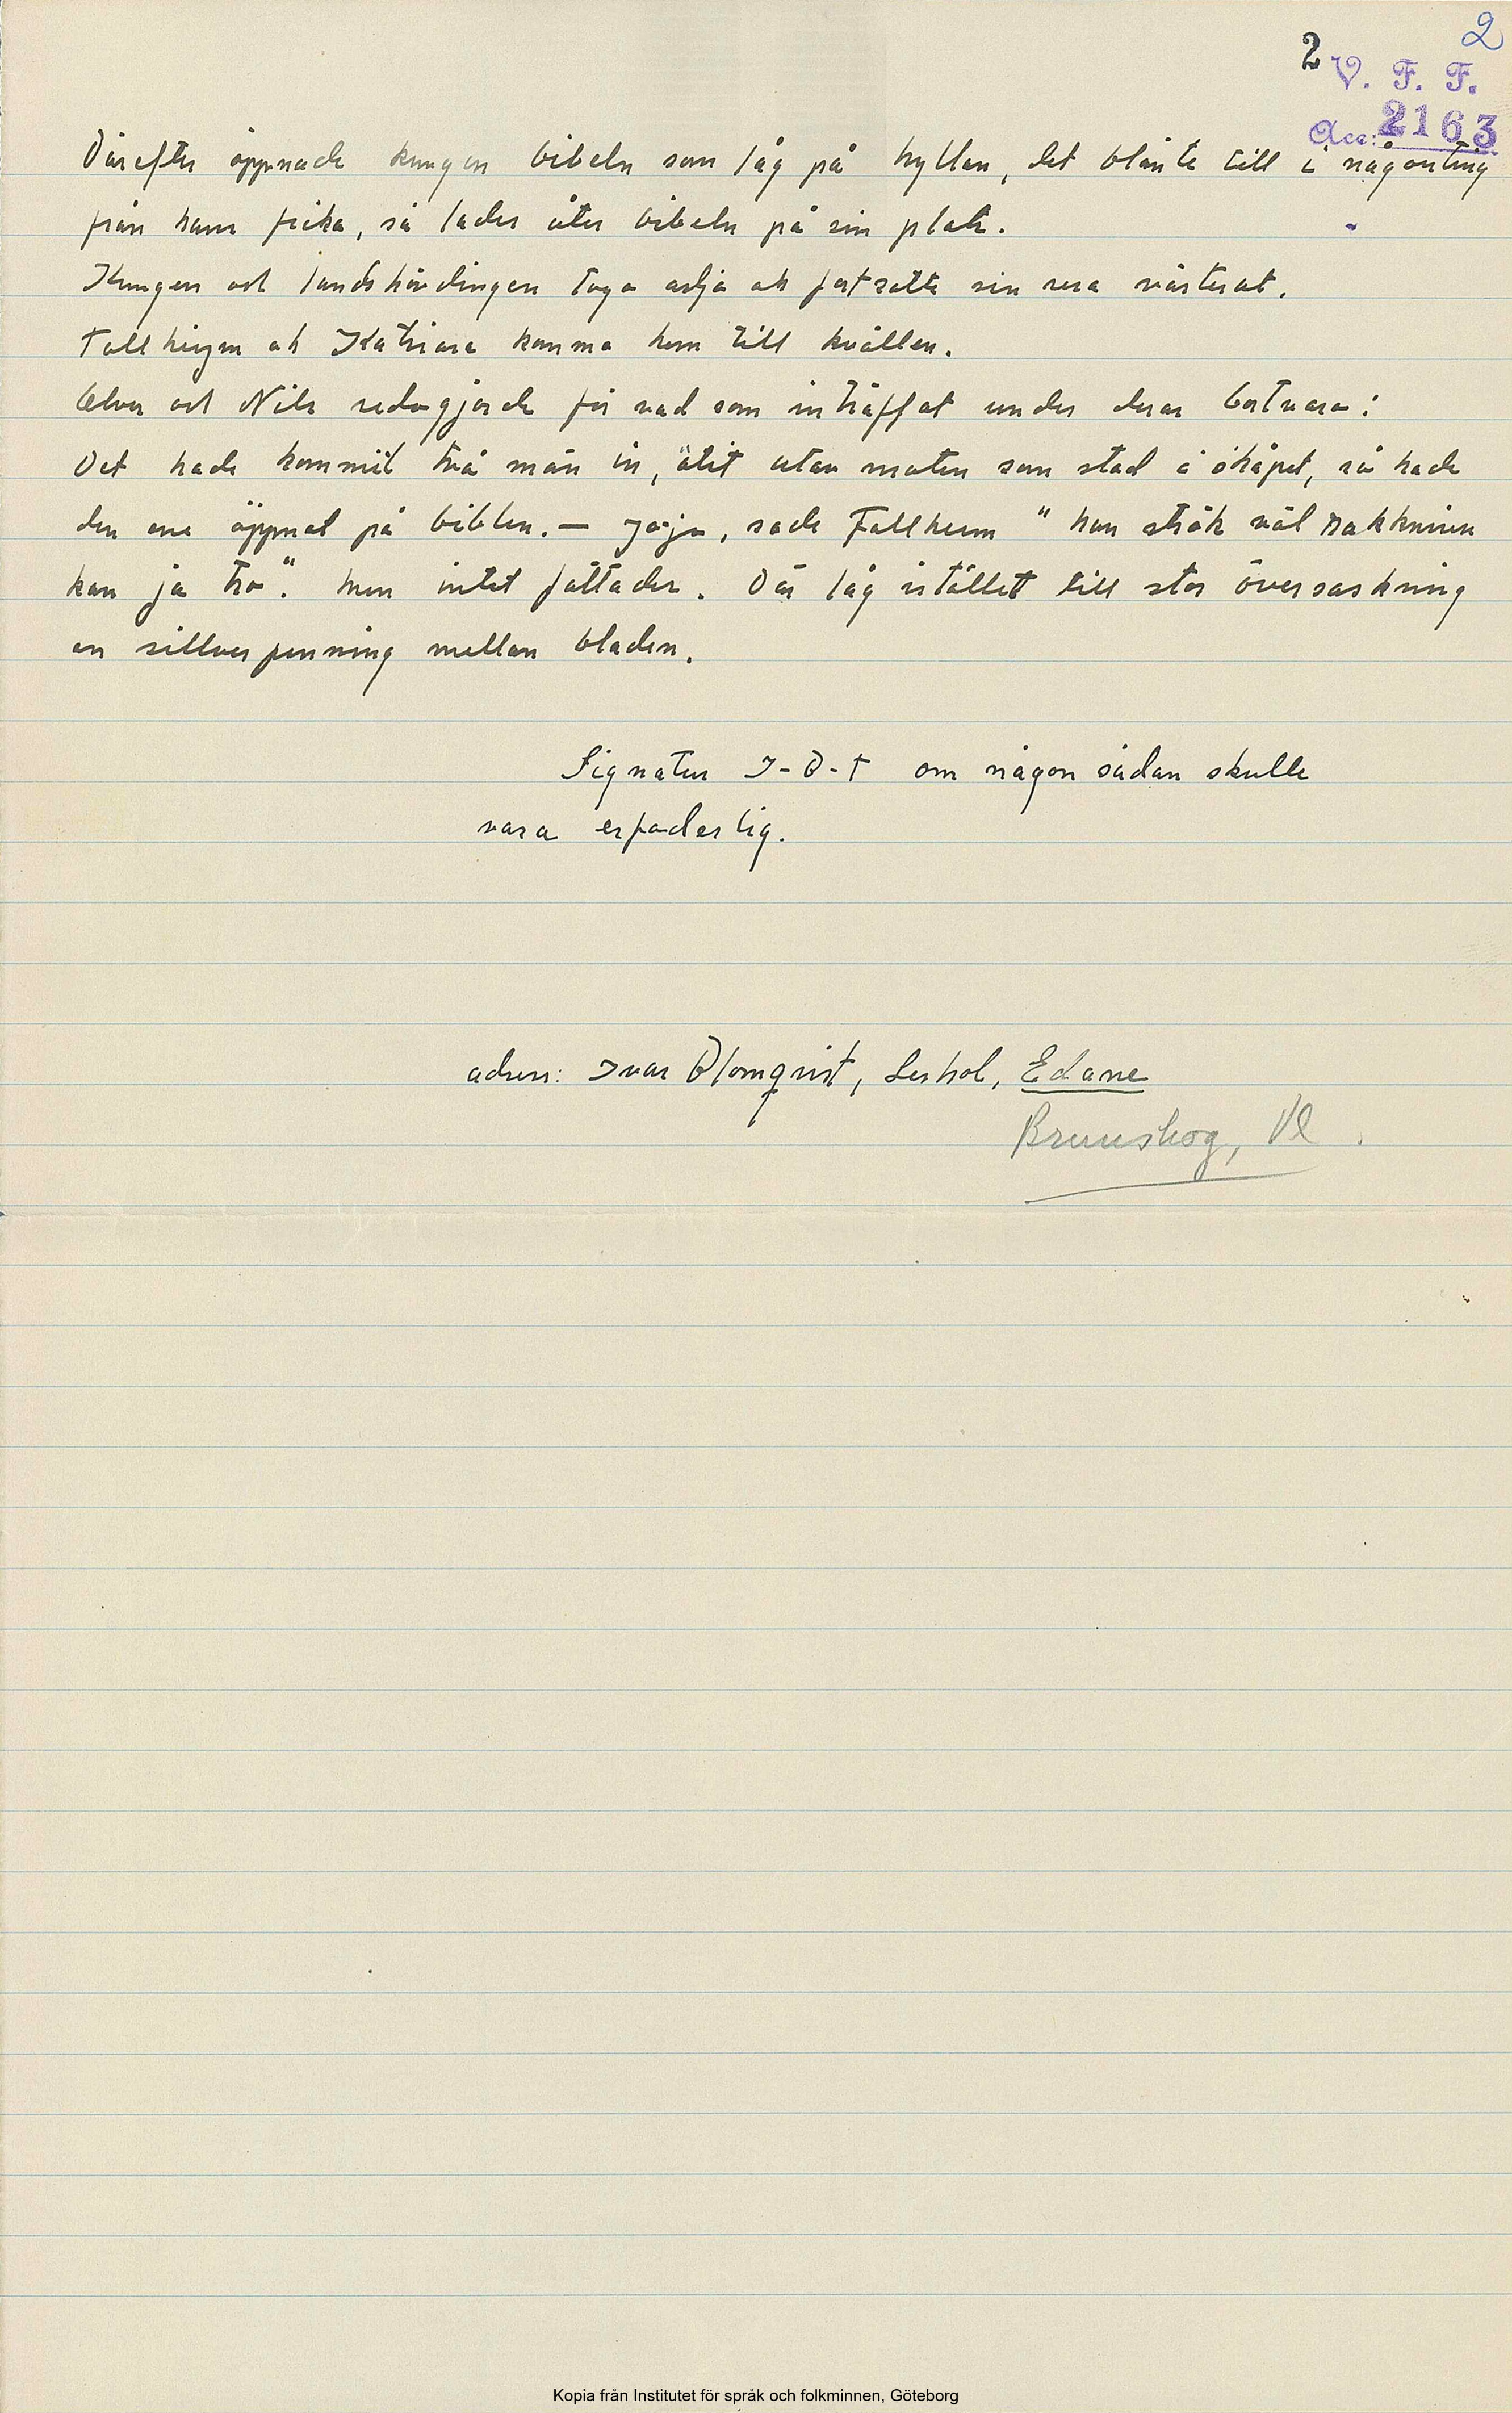 2
2
V. F. F.
Acc: 2163
Därefter öppnade kungen bibeln som låg på hyllan, det blänkte till i någonting
från hans ficka, så lades åter bibeln på sin plats.
Kungen och landshövdingen togo avsja och fortsatte sin resa västerut.
Fallheim och Katrina komma hem till kvällen.
och Nils redogjorde för vad som inträffat under deras bortvaro:
Det hade kommit två män in, ätit utav maten som stod i skåpet, så hade
den ene öppnat på bibeln. — Jaja, sade Fallheim "han strök väl rakkniven
kan ja tro". Men intet fattades. Där låg istället till stor översaskning
en sillverpenning mellan bladen.
Signatur I-B-T om någon sådan skulle
vara erfoderlig.
adress: Ivar Blomqvist, Lerhol, Edane
Brunskog, Vl.
Kopia från Institutet för språk och folkminnen, Göteborg